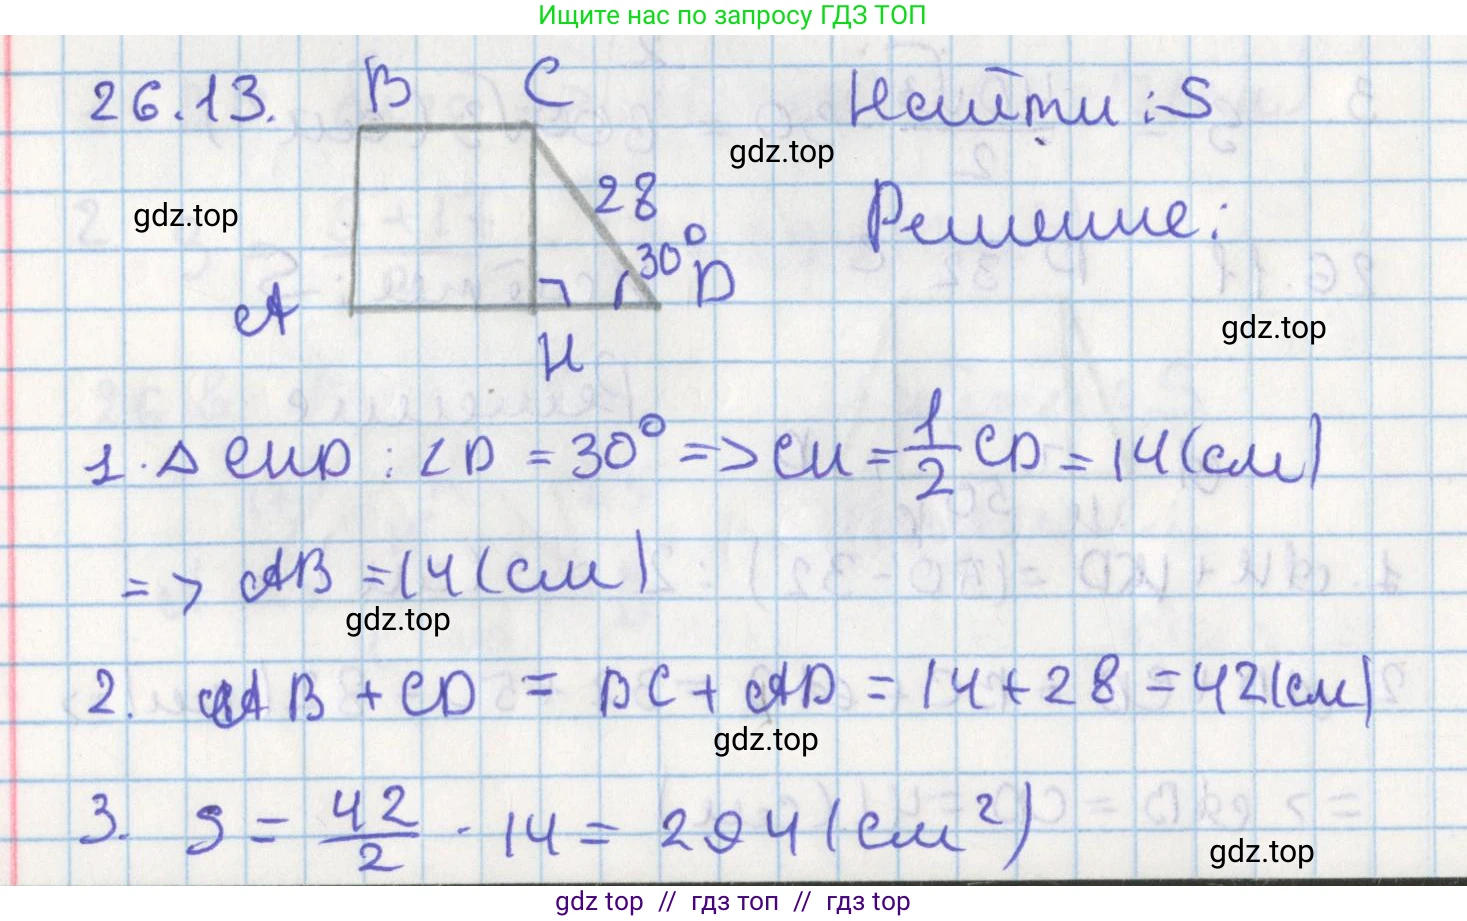 Ищите нас по запросу ГДЗ ТОП
26.13. B C Найти : S
gdz.top
28
gdz.top
Решение:
30° D
A
gdz.top
H
1. △ CHD : ∠D = 30° => CH = 1/2 CD = 14 (см)
=> AB = 14 (см)
gdz.top
2. AB + CD = BC + AD = 14 + 28 = 42 (см)
gdz.top
3. S = 42/2 · 14 = 294 (см²)
gdz.top
gdz top // гдз топ // гдз top